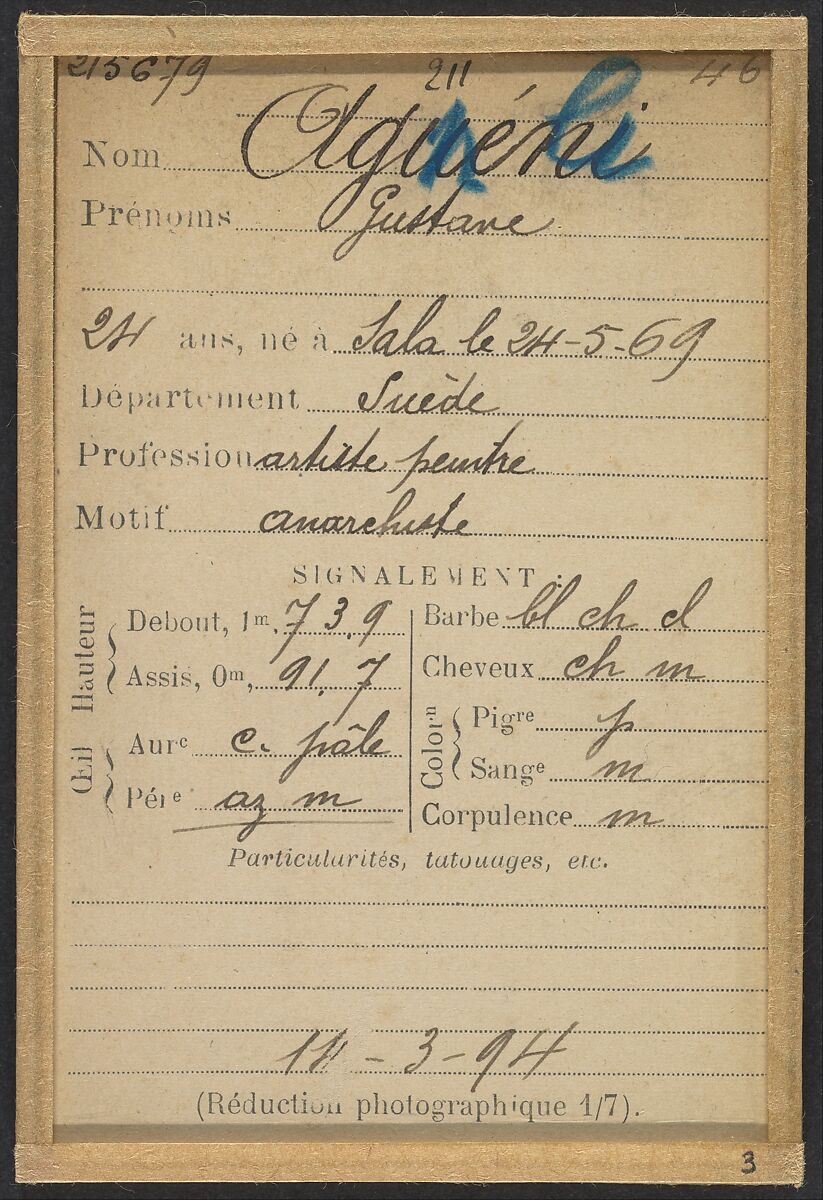 215679 211 46
Nom Aguéni
Prénoms Gustave
24 ans, né à Sala le 24-5-69
Département Suède
Profession artiste peintre
Motif anarchiste
SIGNALEMENT :
Hauteur
Debout, 1m, 73,9
Assis, 0m, 91,7
Œil
Aure c. pâle
Pére az m
Barbe bl ch cl
Cheveux ch m
Colorn
Pigre p
Sange m
Corpulence m
Particularités, tatouages, etc.
14-3-94
(Réduction photographique 1/7).
3